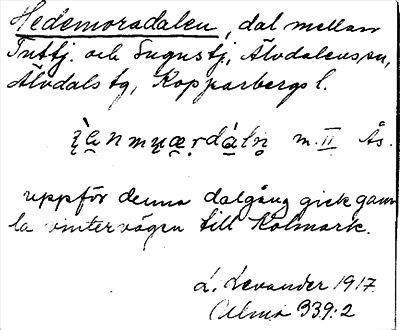 Hedemoradalen, dal mellan
Tuttj. och Sugustj, Älvdalens sn,
Älvdals tg, Kopparbergs l.
m. II Ås.
uppför denna dalgång gick gam
la vintervägen till Kolmark.
L. Levander 1917
Ulma 339:2